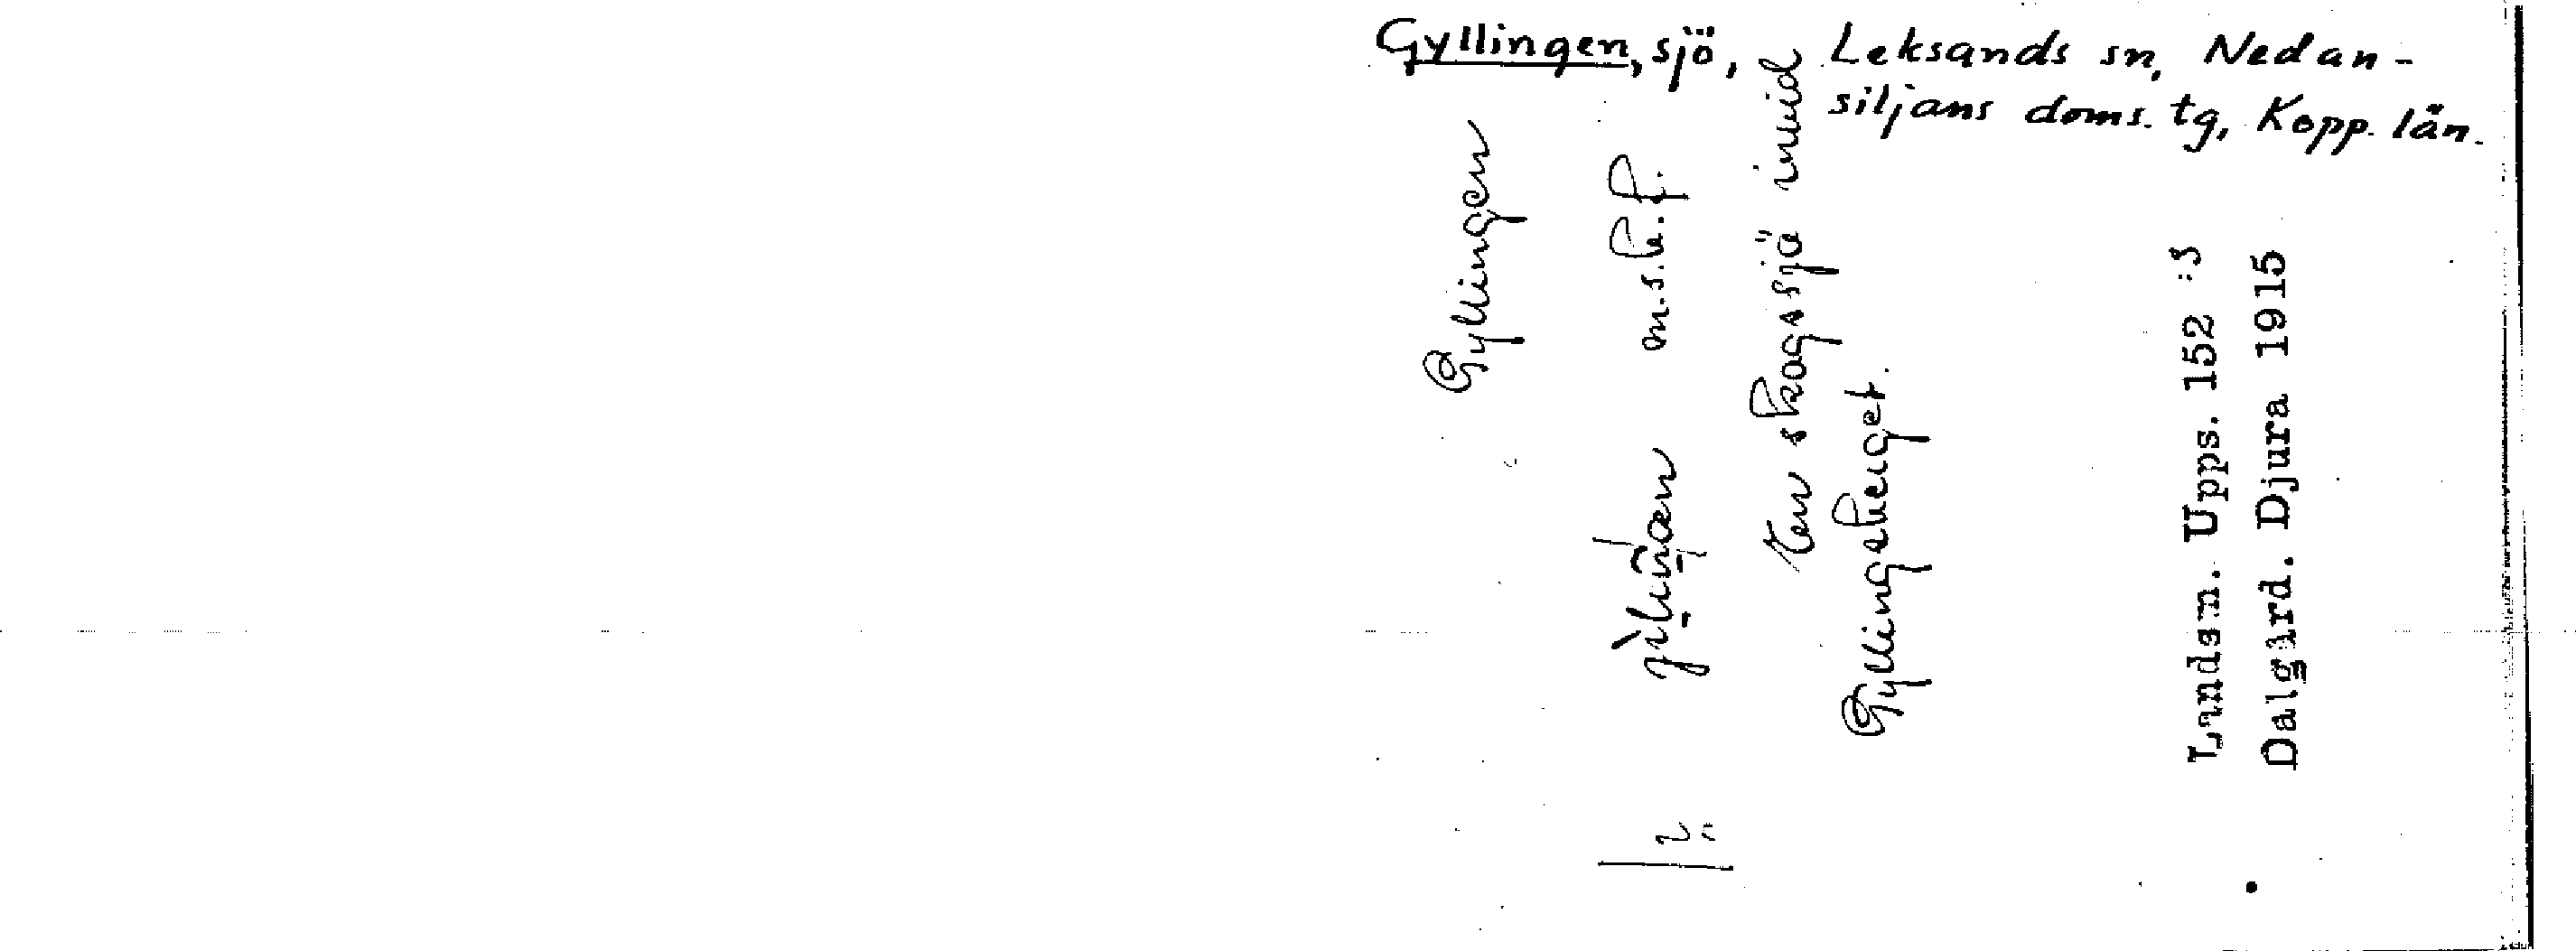 Gyllingen, sjö, Leksands sn, Nedan-
siljans doms. tg, Kopp. län.
Gyllingen
m.s.b.f.
En skogssjö invid
Gyllingsberget.
Landsm. Upps. 152:3
Dalgård. Djura 1915